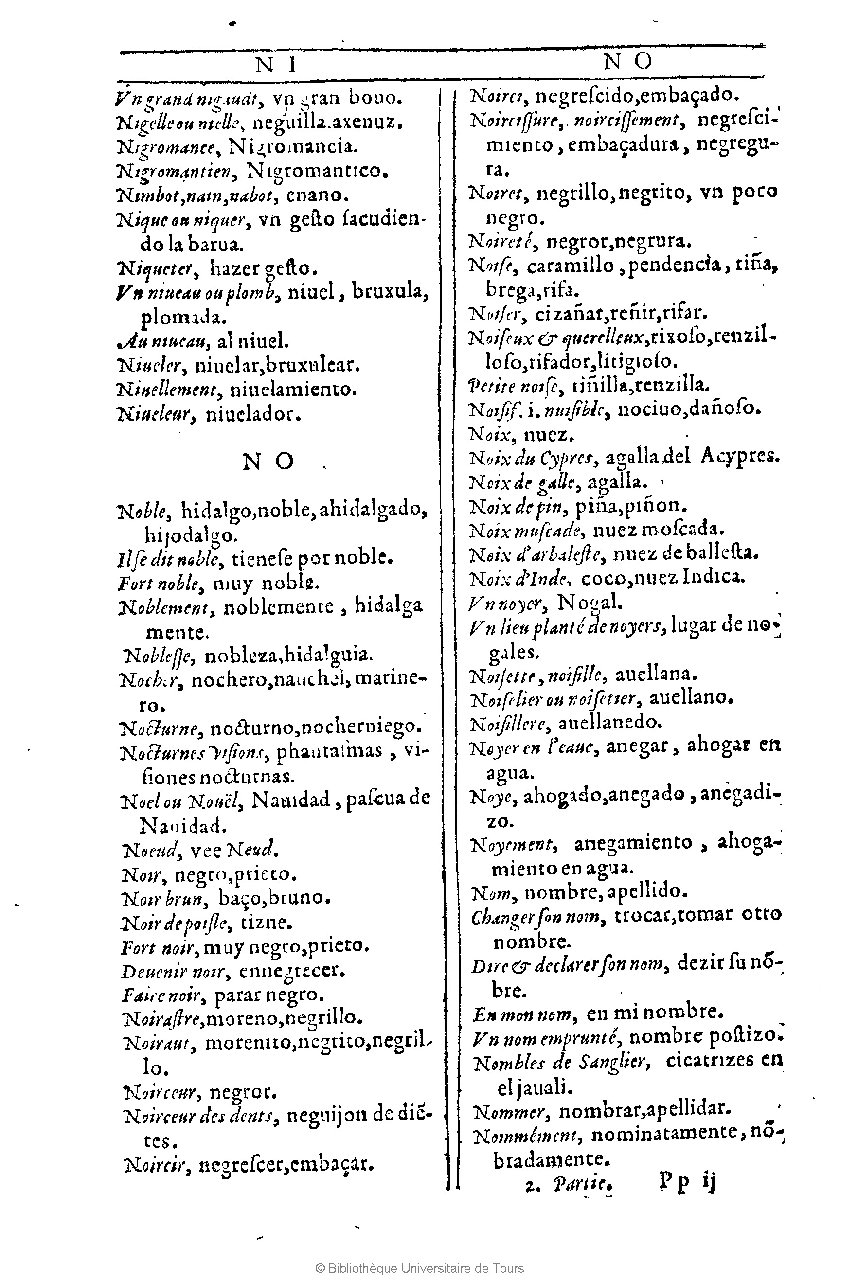 N I
Vn grand nigaudt, vn gran bouo.
Nigelle ou nielle, neguilla.axenuz.
Nigromance, Nigromancia.
Nigromantien, Nigromantico.
Nimbot,nain,nabot, enano.
Nique ou niquer, vn geſto ſacudien-
do la barua.
Niqueter, hazer geſto.
Vn niueau ou plomb, niuel, bruxula,
plomada.
Au niueau, al niuel.
Niueler, niuelar,bruxulear.
Niuellement, niuelamiento.
Niueleur, niuelador.
N O
Noble, hidalgo,noble,ahidalgado,
hijodalgo.
Il ſe dit noble, tieneſe por noble.
Fort noble, muy noble.
Noblement, noblemente , hidalga
mente.
Nobleſſe, nobleza,hidalguia.
Nocher, nochero,naucher,marine-
ro.
Nocturne, nocturno,nocherniego.
Nocturnes viſions, phantaſmas , vi-
ſiones nocturnas.
Noel ou Nouël, Nauidad , paſcua de
Nauidad.
Noeud, vee Neud.
Noir, negro,prieto.
Noir brun, baço,bruno.
Noir de poiſle, tizne.
Fort noir, muy negro,prieto.
Deuenir noir, ennegrecer.
Faire noir, parar negro.
Noiraſtre,moreno,negrillo.
Noiraut, morenito,negrito,negril-
lo.
Noirceur, negror.
Noirceur des dents, neguijon de diē-
tes.
Noircir, negreſcer,embaçar.
N O
Noirci, negreſcido,embaçado.
Noirciſſure, noirciſſement, negreſci-
miento , embaçadura , negregu-
ra.
Noiret, negrillo,negrito, vn poco
negro.
Noireté, negror,negrura.
Noiſe, caramillo ,pendencia, riña,
brega,rifa.
Noiſer, cizañar,reñir,rifar.
Noiſeux & querelleux,rixoſo,renzil-
loſo,rifador,litigioſo.
Petite noiſe, riñilla,renzilla.
Noiſif. i. nuiſible, nociuo,dañoſo.
Noix, nuez.
Noix du Cypres, agalla del Acypres.
Noix de galle, agalla.
Noix de pin, piña,piñon.
Noix muſcade, nuez moſcada.
Noix d'arbaleſte, nuez de balleſta.
Noix d'Inde, coco,nuez Indica.
Vn noyer, Nogal.
Vn lieu planté de noyers, lugar de no-
gales.
Noiſette, noiſille, auellana.
Noiſelier ou noiſettier, auellano.
Noiſillere, auellanedo.
Noyer en l'eaue, anegar , ahogar en
agua.
Noye, ahogado,anegado , anegadi-
zo.
Noyement, anegamiento , ahoga-
miento en agua.
Nom, nombre,apellido.
Changer ſon nom, trocar,tomar otro
nombre.
Dire & declarer ſon nom, dezir ſu nō-
bre.
En mon nom, en mi nombre.
Vn nom emprunté, nombre poſtizo.
Nombles de Sanglier, cicatrizes en
el jauali.
Nommer, nombrar,apellidar.
Nommément, nominatamente, nō-
bradamente.
2. Partie. Pp ij
© Bibliothèque Universitaire de Tours